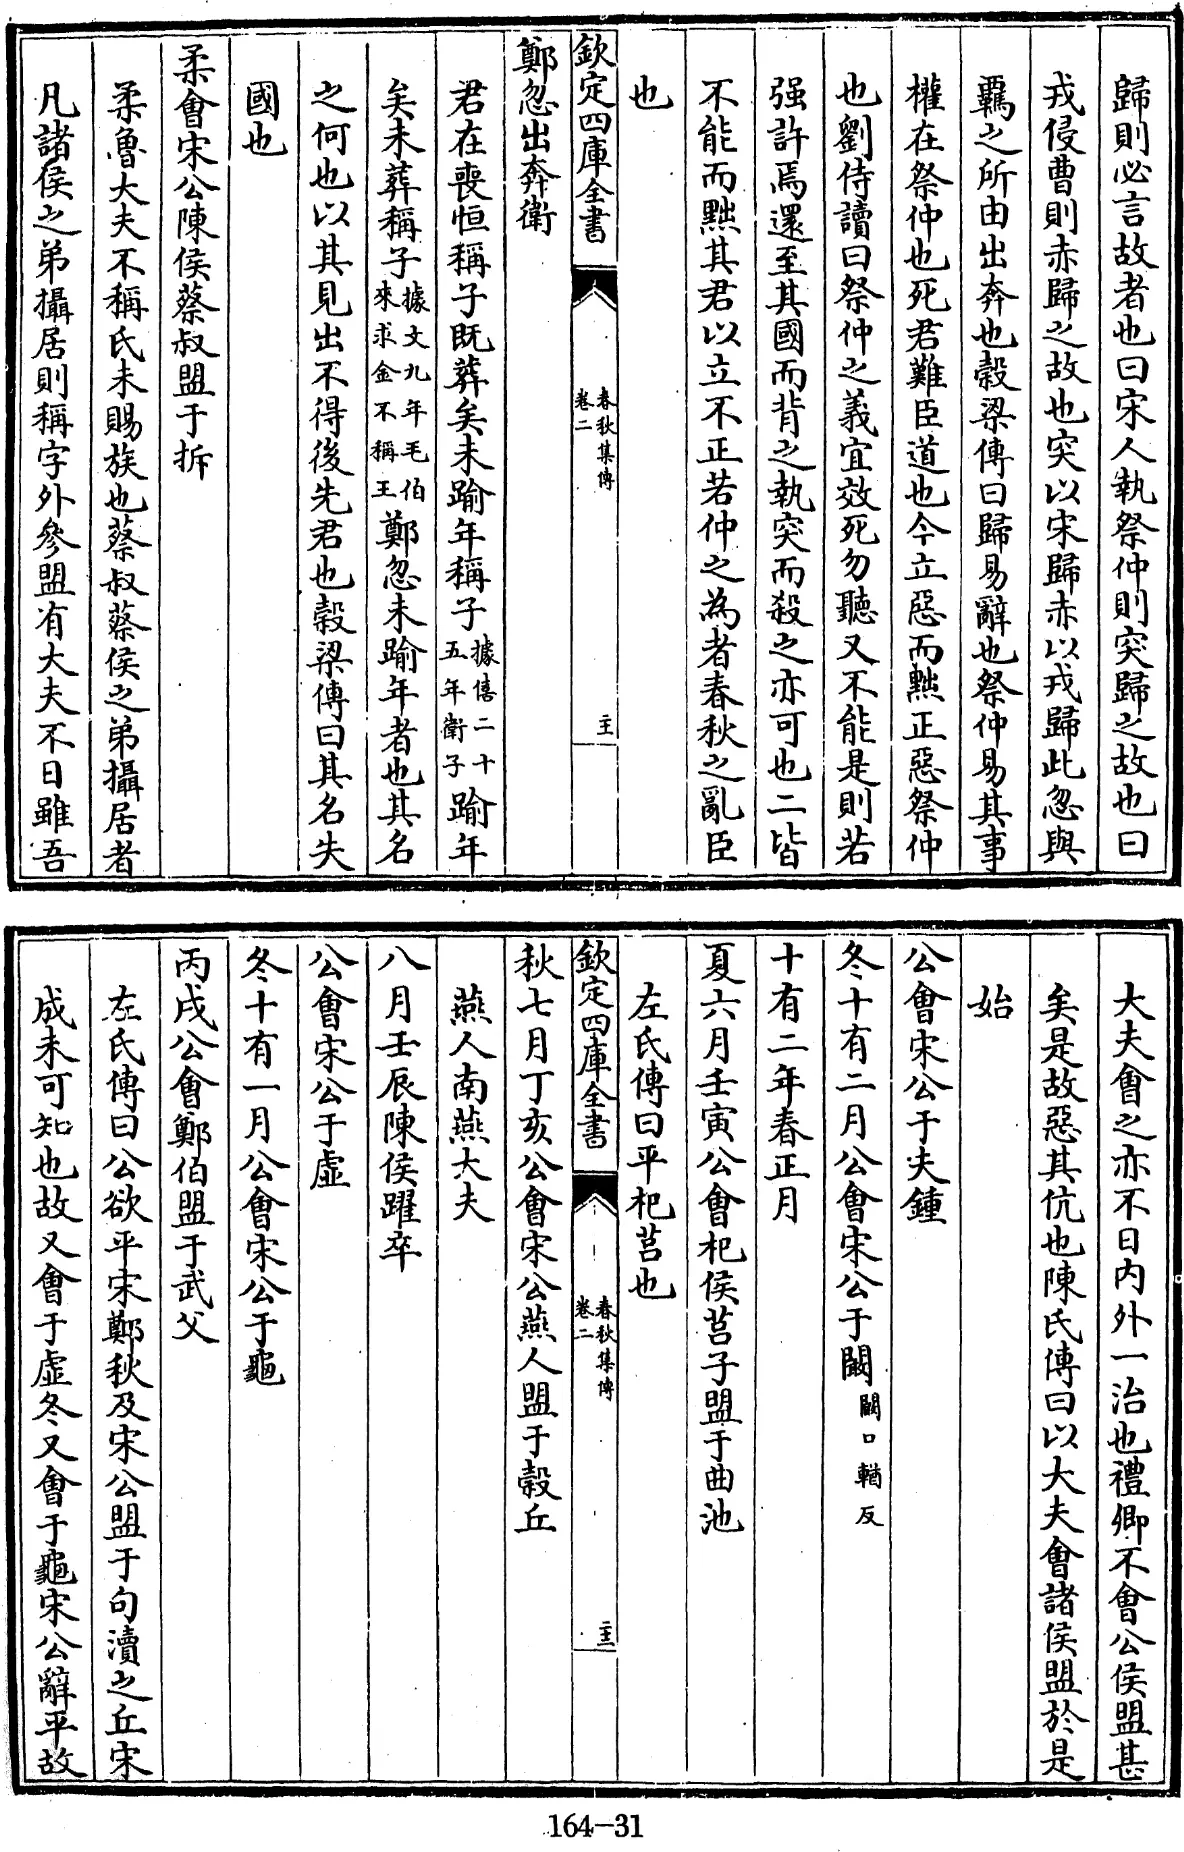 歸則必言故者也曰宋人執祭仲則突歸之故也曰
戎侵曹則赤歸之故也突以宋歸赤以戎歸此忽與
羈之所由出奔也穀梁傳曰歸易辭也祭仲易其事
權在祭仲也死君難臣道也今立惡而黜正惡祭仲
也劉侍讀曰祭仲之義宜效死勿聽又不能是則若
强許焉還至其國而背之執突而殺之亦可也二皆
不能而黜其君以立不正若仲之為者春秋之亂臣
也
欽定四庫全書
春秋集傳
卷二
鄭忽出奔衛
君在喪恒稱子既葬矣未踰年稱子據僖二十五年衛子踰年
矣未葬稱子據文九年毛伯來求金不稱王鄭忽未踰年者也其名
之何也以其見出不得後先君也穀梁傳曰其名失
國也
柔會宋公陳侯蔡叔盟于折
柔魯大夫不稱氏未賜族也蔡叔蔡侯之弟攝居者
凡諸侯之弟攝居則稱字外參盟有大夫不日雖吾
大夫會之亦不日内外一治也禮卿不會公侯盟甚
矣是故惡其伉也陳氏傳曰以大夫會諸侯盟於是
始
公會宋公于夫鍾
冬十有二月公會宋公于闞闞口輱反
十有二年春正月
夏六月壬寅公會杞侯莒子盟于曲池
左氏傳曰平杞莒也
欽定四庫全書
春秋集傳
卷二
秋七月丁亥公會宋公燕人盟于穀丘
燕人南燕大夫
八月壬辰陳侯躍卒
公會宋公于虛
冬十有一月公會宋公于龜
丙戌公會鄭伯盟于武父
左氏傳曰公欲平宋鄭秋及宋公盟于句瀆之丘宋
成未可知也故又會于虛冬又會于龜宋公辭平故
164-31